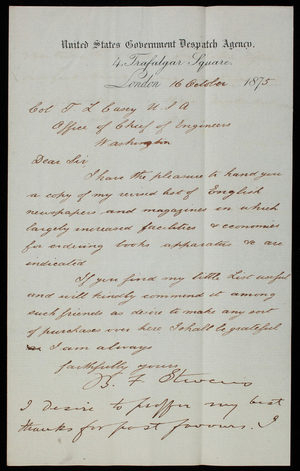 United States Government Despatch Agency.
4, Trafalgar Square.
London 16 October 1875
Col T L Casey U S A
Office of Chief of Engineers
Washington
Dear Sir
I have the pleasure to hand you
a copy of my revised list of English
newspapers and magazines in which
largely increased facilities & economies
for ordering books apparatus &c are
indicated
If you find my little List useful
and will kindly commend it among
such friends as desire to make any sort
of purchases over here I shall be grateful
I am always
faithfully yours
B. F Stevens
I desire to proffer my best
thanks for past favours. I